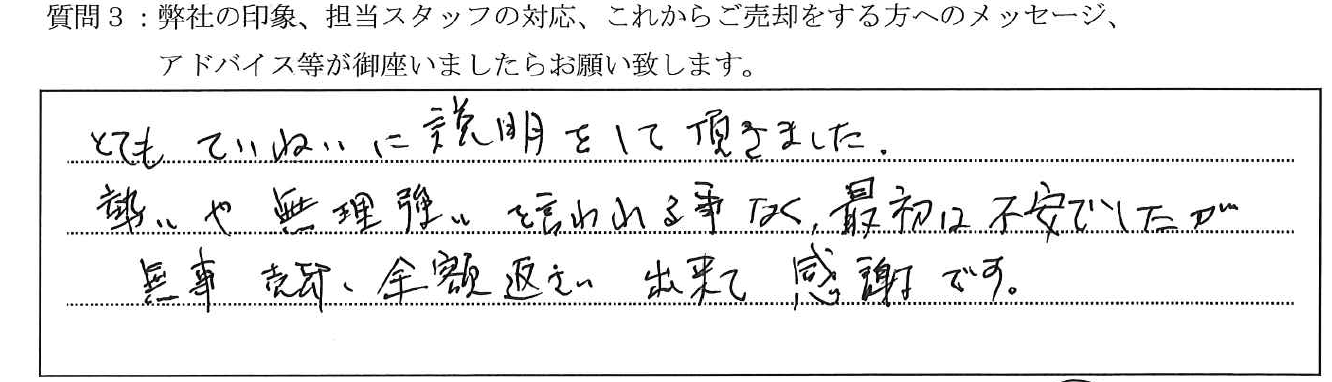 質問３：弊社の印象、担当スタッフの対応、これからご売却をする方へのメッセージ、
アドバイス等が御座いましたらお願い致します。
とても ていねいに説明をして頂きました.
勢いや無理強いを言われる事なく,最初は不安でしたが
無事売却、全額返済出来て感謝です。